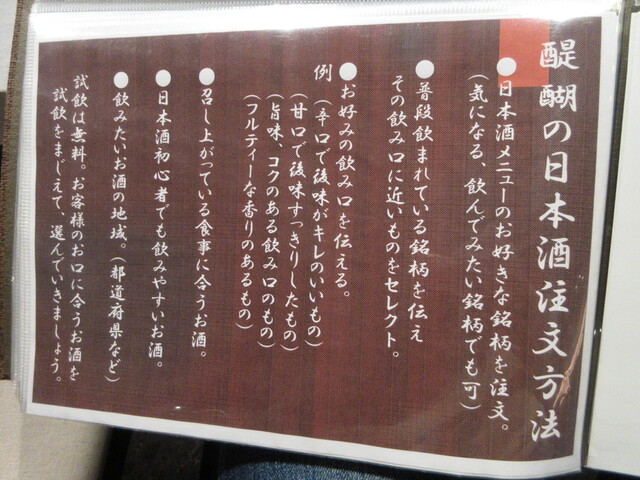 醍醐の日本酒注文方法
●日本酒メニューのお好きな銘柄を注文。
（気になる、飲んでみたい銘柄でも可）
●普段飲まれている銘柄を伝え
その飲み口に近いものをセレクト。
●お好みの飲み口を伝える。
例（辛口で後味がキレのいいもの）
（甘口で後味すっきりしたもの）
（旨味、コクのある飲み口のもの）
（フルティーな香りのあるもの）
●召し上がっている食事に合うお酒。
●日本酒初心者でも飲みやすいお酒。
●飲みたいお酒の地域。（都道府県など）
試飲は無料。お客様のお口に合うお酒を
試飲をまじえて、選んでいきましょう。